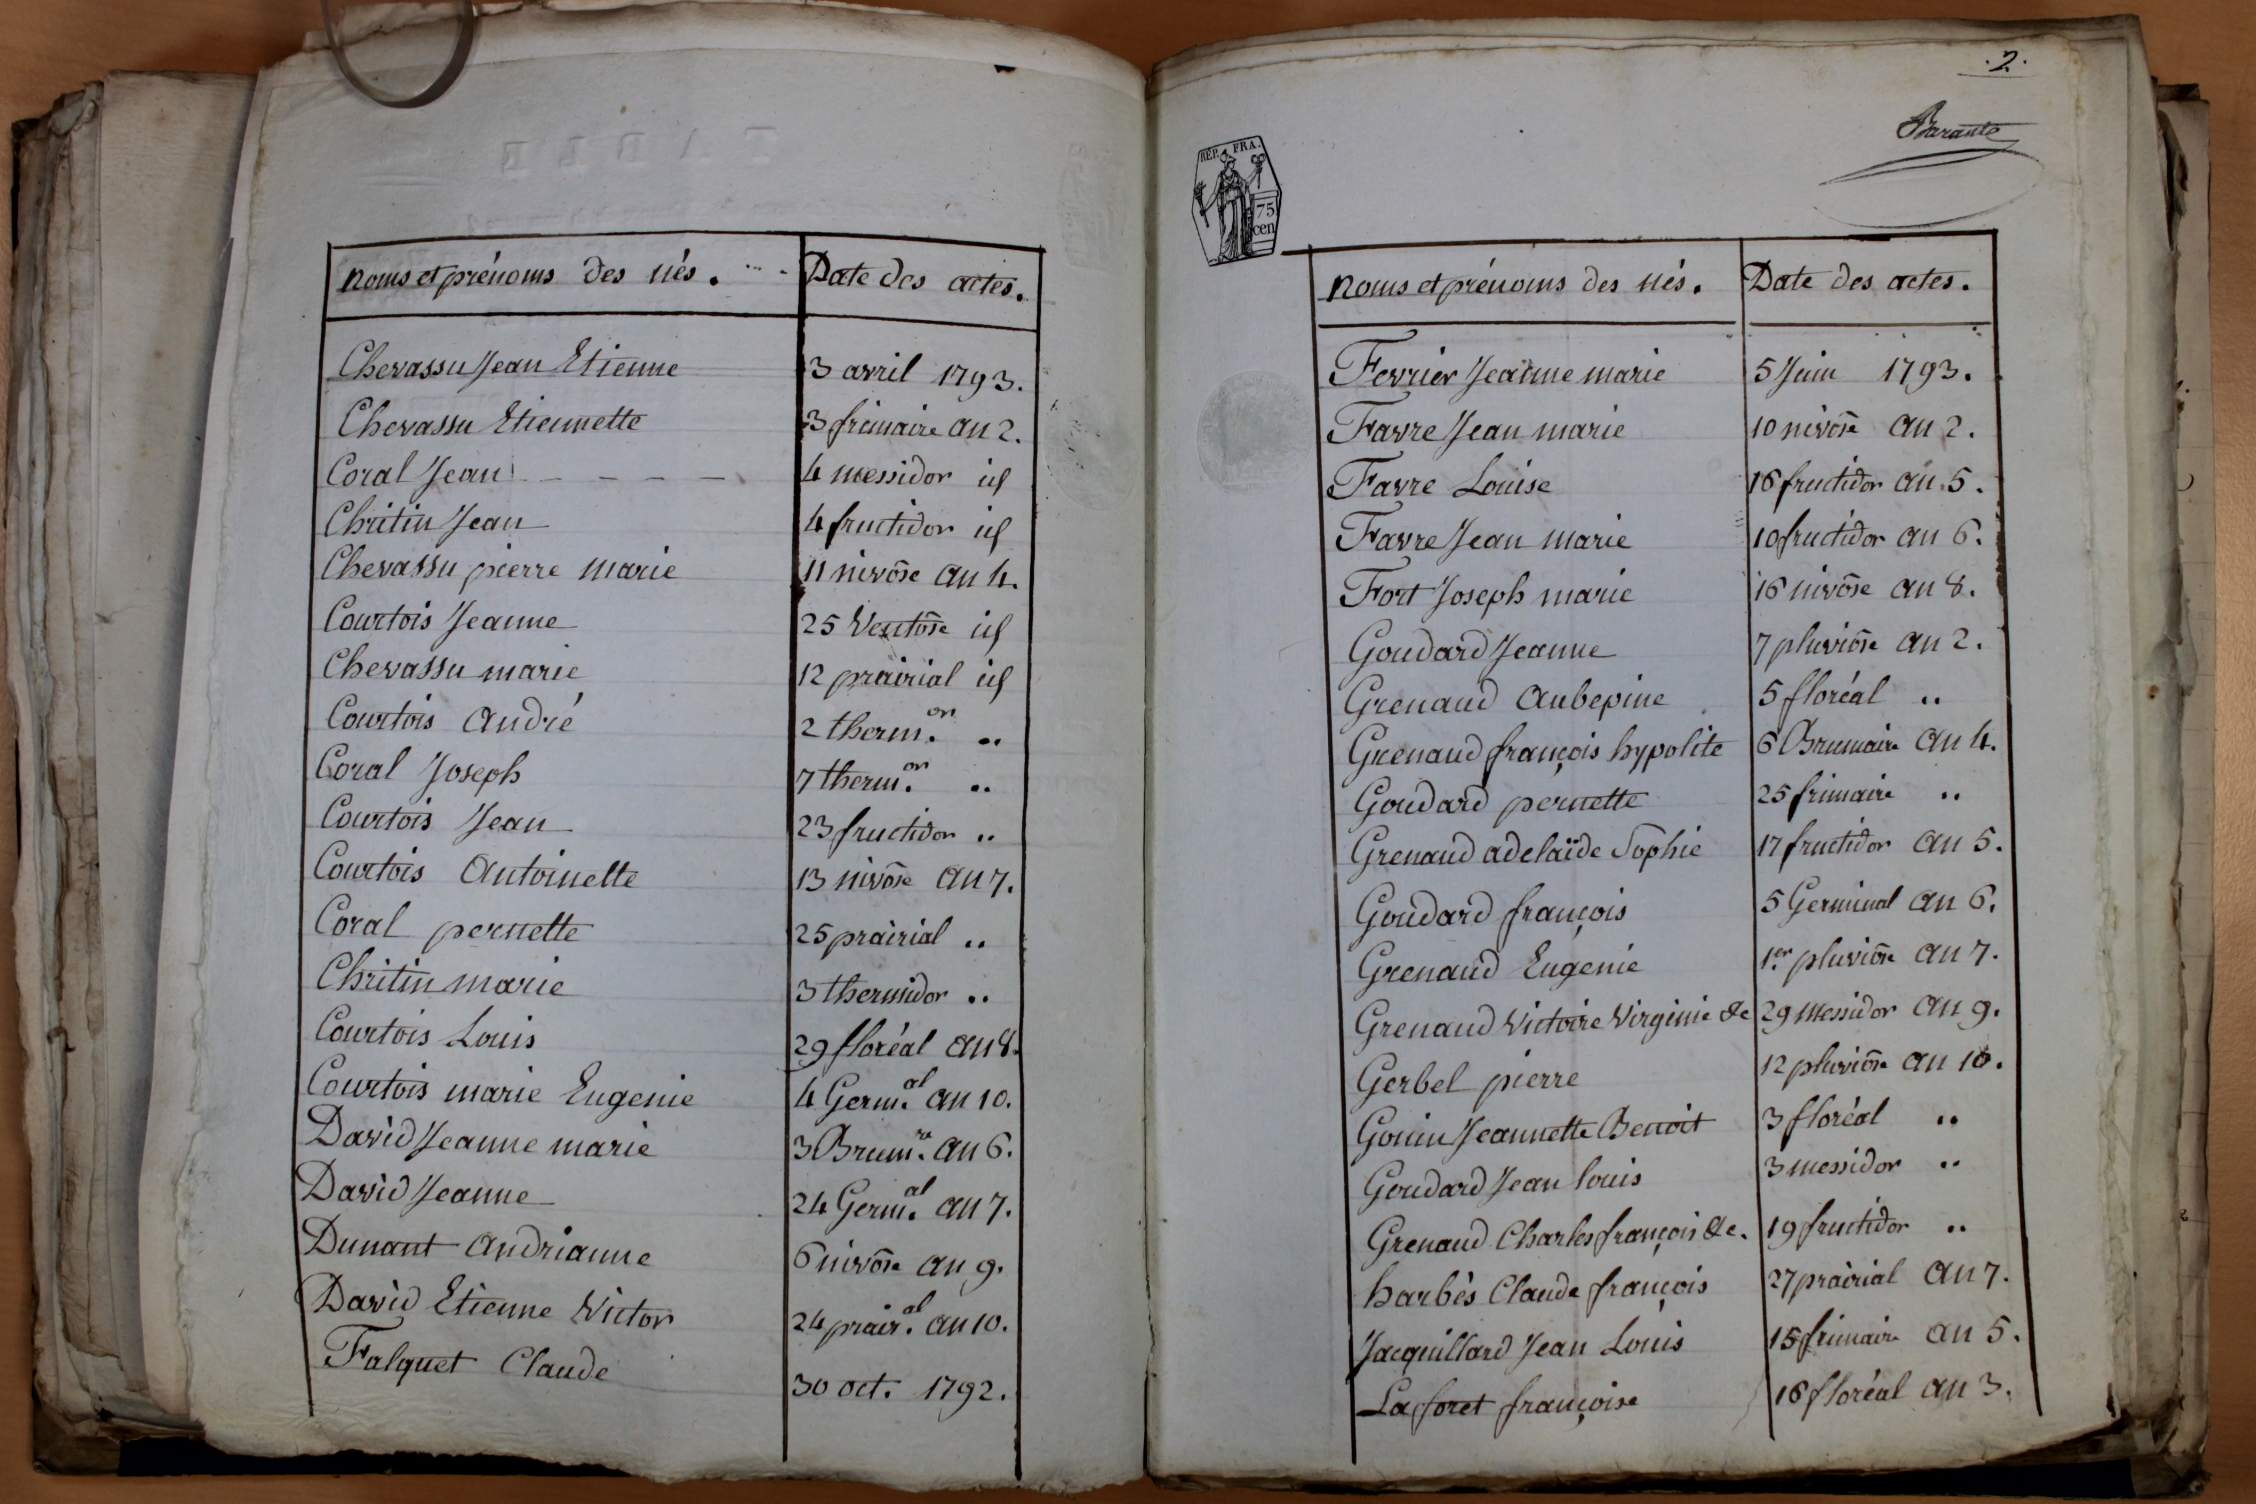 noms et prénoms des nés. Date des actes.
Chevassu Jean Etienne 3 avril 1793.
Chevassu Etiennette 3 frimaire an 2.
Coral Jean 4 messidor id
Chritin Jean 4 fructidor id
Chevassu pierre marie 11 nivôse an 4.
Courtois Jeanne 25 Ventôse id
Chevassu marie 12 prairial id
Courtois andré 2 therm.on ..
Coral Joseph 7 therm.on ..
Courtois Jean 23 fructidor ..
Courtois Antoinette 13 nivôse an 7.
Coral pernette 25 prairial ..
Chritin marie 3 thermidor ..
Courtois Louis 29 floréal an 8.
Courtois marie Eugenie 4 Germ.al an 10.
David Jeanne marie 3 Brum.re an 6.
David Jeanne 24 Germ.al an 7.
Dunant andrianne 6 nivôse an 9.
David Etienne Victor 24 prair.al an 10.
Falquet Claude 30 oct. 1792.
.2.
Barante
REP. FRA.
75
cen
noms et prénoms des nés. Date des actes.
Fevrier Jeanne marie 5 Juin 1793.
Favre Jean marie 10 nivôse an 2.
Favre Louise 16 fructidor an 5.
Favre Jean marie 10 fructidor an 6.
Fort Joseph marie 16 nivôse an 8.
Goudard Jeanne 7 pluviôse an 2.
Grenaud aubepine 5 floréal ..
Grenaud françois hypolite 6 Brumaire an 4.
Goudard pernette 25 frimaire ..
Grenaud adelaïde Sophie 17 fructidor an 5.
Goudard françois 5 Germinal an 6.
Grenaud Eugenie 1.er pluviôse an 7.
Grenaud Victoire Virginie &c 29 messidor an 9.
Gerbel pierre 12 pluviôse an 10.
Gonin Jeannette Benoit 3 floréal ..
Goudard Jean louis 3 messidor ..
Grenaud Charles françois &c. 19 fructidor ..
harbés Claude françois 27 prairial an 7.
Jacquillard Jean Louis 15 frimaire an 5.
Laforet françoise 16 floréal an 3.